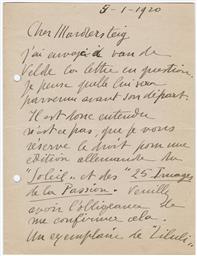 5-1-1920
Cher Mardersteig
J'ai envoyé à van de
Velde la lettre en question.
Je pense qu'elle lui sera
parvenue avant son départ.
Il est donc entendu
n'est-ce pas, que je vous
réserve le droit pour une
édition allemande du
"Soleil" et des "25 Images
de la Passion". Veuillez
avoir l'obligeance de
me confirmer cela.
Un exemplaire de "Liluli"